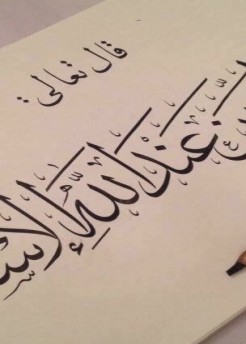 قال تعالى
عند الله الإ